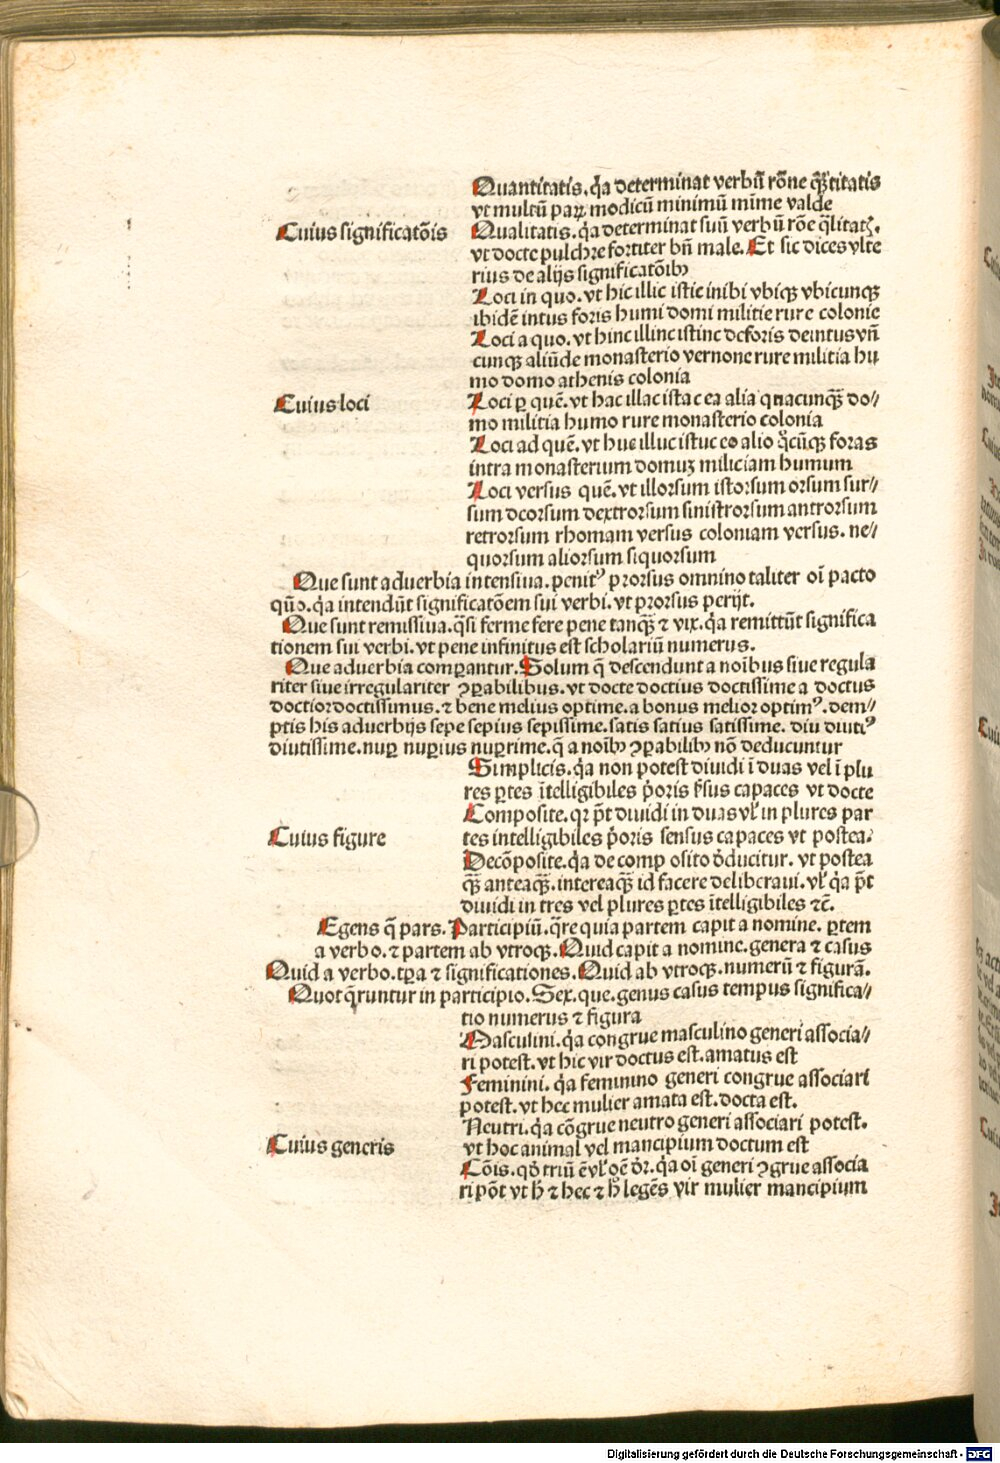 Quantitatis. q̇a determinat verbū rōne qꝫ̄titatis
vt multū paꝝ modicū minimū mīme valde
Cuius significatōis
Qualitatis. q̇a determinat suū verbū rōe q̄litatꝭ.
vt docte pulchre fortiter bn̄ male. Et sic dices vlte
rius de alijs significatōibꝰ
Loci in quo. vt hic illic istic inibi vbiqꝫ vbicunqꝫ
ibidē intus foris humi domi militie rure colonie
Loci a quo. vt hinc illinc istinc deforis deintus vn̄
cunqꝫ aliūde monasterio vernone rure militia hu
mo domo athenis colonia
Cuius loci
Loci ꝑ quē. vt hac illac istac ea alia quacunqꝫ̄ do//
mo militia humo rure monasterio colonia
Loci ad quē. vt huc illuc istuc eo alio q̊cūqꝫ foras
intra monasterium domuꝫ miliciam humum
Loci versus quē. vt illorsum istorsum orsum sur//
sum deorsum dextrorsum sinistrorsum antrorsum
retrorsum rhomam versus coloniam versus. ne//
quorsum aliorsum siquorsum
Que sunt aduerbia intensiua. penitꝰ prorsus omnino taliter oī pacto
quō. q̇a intendūt significatōem sui verbi. vt prorsus perijt.
Que sunt remissiua. q̄si ferme fere pene tanqꝫ̄ ⁊ vix. q̇a remittūt significa
tionem sui verbi. vt pene infinitus est scholariū numerus.
Que aduerbia comꝑantur. Solum q̄ descendunt a noībus siue regula
riter siue irregulariter ꝯꝑabilibus. vt docte doctius doctissime a doctus
doctior doctissimus. ⁊ bene melius optime. a bonus melior optimꝰ. dem//
ptis his aduerbijs sepe sepius sepissime. satis satius satissime. diu diutiꝰ
diutissime. nuꝑ nuꝑius nuꝑrime. q̄ a noībꝰ ꝯꝑabilibꝰ nō deducuntur
Simplicis. q̇a non potest diuidi ī duas vel ī plu
res ꝑtes ītelligibiles p̄oris s̄sus capaces vt docte
Composite. qꝛ p̄t diuidi in duas vl̄ in plures par
Cuius figure
tes intelligibiles p̄oris sensus capaces vt postea.
Decōposite. q̇a de comp osito ꝓducitur. vt postea
qꝫ̄ anteaqꝫ̄. intereaqꝫ̄ id facere deliberaui. vl̄ q̇a p̄t
diuidi in tres vel plures ꝑtes ītelligibiles ⁊c̄.
Egens q̄ pars. Participiū. q̄re quia partem capit a nomine. ꝑtem
a verbo. ⁊ partem ab vtroqꝫ. Quid capit a nomine. genera ⁊ casus
Quid a verbo. tꝑa ⁊ significationes. Quid ab vtroqꝫ. numerū ⁊ figurā.
Quot q̄runtur in participio. Sex. que. genus casus tempus significa//
tio numerus ⁊ figura
Masculini. q̇a congrue masculino generi associa//
ri potest. vt hic vir doctus est. amatus est
Feminini. q̇a feminino generi congrue associari
potest. vt hec mulier amata est. docta est.
Neutri. q̇a cōgrue neutro generi associari potest.
Cuius generis
vt hoc animal vel mancipium doctum est
Cōis. qd̄ triū ēvl̄ oē dr̄. q̇a oī generi ꝯgrue associa
ri pōt vt h̄ ⁊ hec ⁊ h̄ legēs vir mulier mancipium
Digitalisierung gefördert durch die Deutsche Forschungsgemeinschaft - DFG